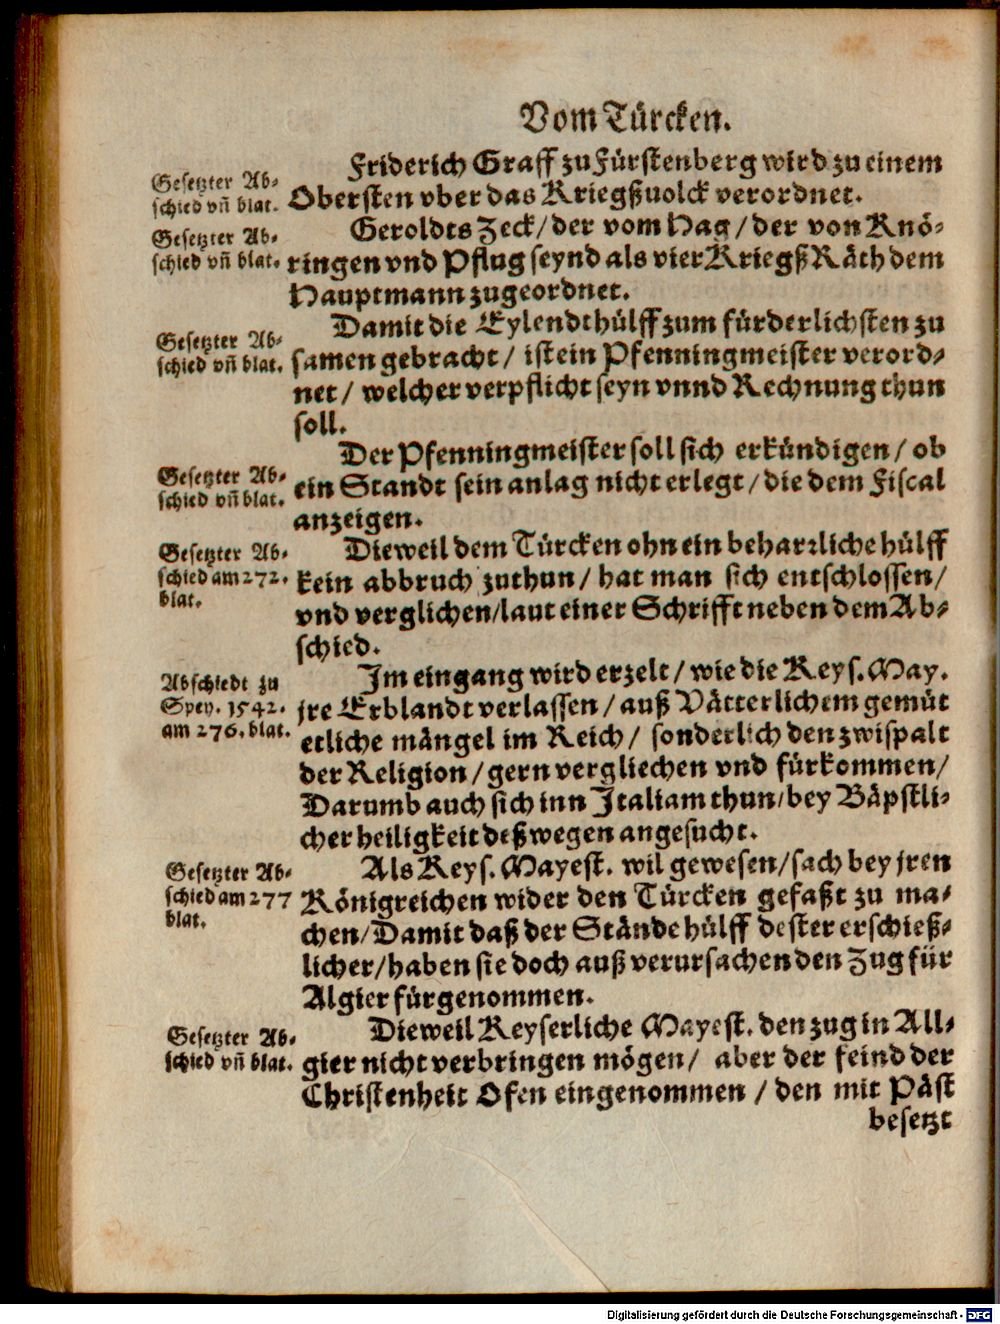 Vom Türcken.
Gesetzter Ab-
schied vñ blat.
Friderich Graff zu Fürstenberg wird zu einem
Obersten vber das Kriegßuolck verordnet.
Gesetzter Ab-
schied vñ blat.
Geroldts Zeck/ der vom Hag/ der von Knö-
ringen vnd Pflug seynd als vier Kriegß Räth dem
Hauptmann zugeordnet.
Gesetzter Ab-
schied vñ blat.
Damit die Eylendt hülff zum fürderlichsten zu
samen gebracht/ ist ein Pfenningmeister verord-
net/ welcher verpflicht seyn vnnd Rechnung thun
soll.
Gesetzter Ab-
schied vñ blat.
Der Pfenningmeister soll sich erkündigen/ ob
ein Standt sein anlag nicht erlegt/ die dem Fiscal
anzeigen.
Gesetzter Ab-
schied am 272.
blat.
Dieweil dem Türcken ohn ein beharꝛliche hülff
kein abbruch zuthun/ hat man sich entschlossen/
vnd verglichen/ laut einer Schrifft neben dem Ab-
schied.
Abschiedt zu
Spey. 1542.
am 276. blat.
Im eingang wird erzelt/ wie die Keys. May.
jre Erblandt verlassen/ auß Vätterlichem gemüt
etliche mängel im Reich/ sonderlich den zwispalt
der Religion/ gern vergliechen vnd fürkommen/
Darumb auch sich inn Italiam thun/ bey Bäpstli-
cher heiligkeit deßwegen angesucht.
Gesetzter Ab-
schied am 277
blat.
Als Keys. Mayest. wil gewesen/ sach bey jren
Königreichen wider den Türcken gefaßt zu ma-
chen/ Damit daß der Stände hülff dester erschieß-
licher/ haben sie doch auß verursachen den Zug für
Algier fürgenommen.
Gesetzter Ab-
schied vñ blat.
Dieweil Keyserliche Mayest. den zug in All-
gier nicht verbringen mögen/ aber der feind der
Christenheit Ofen eingenommen/ den mit Päst
besetzt
Digitalisierung gefördert durch die Deutsche Forschungsgemeinschaft - DFG